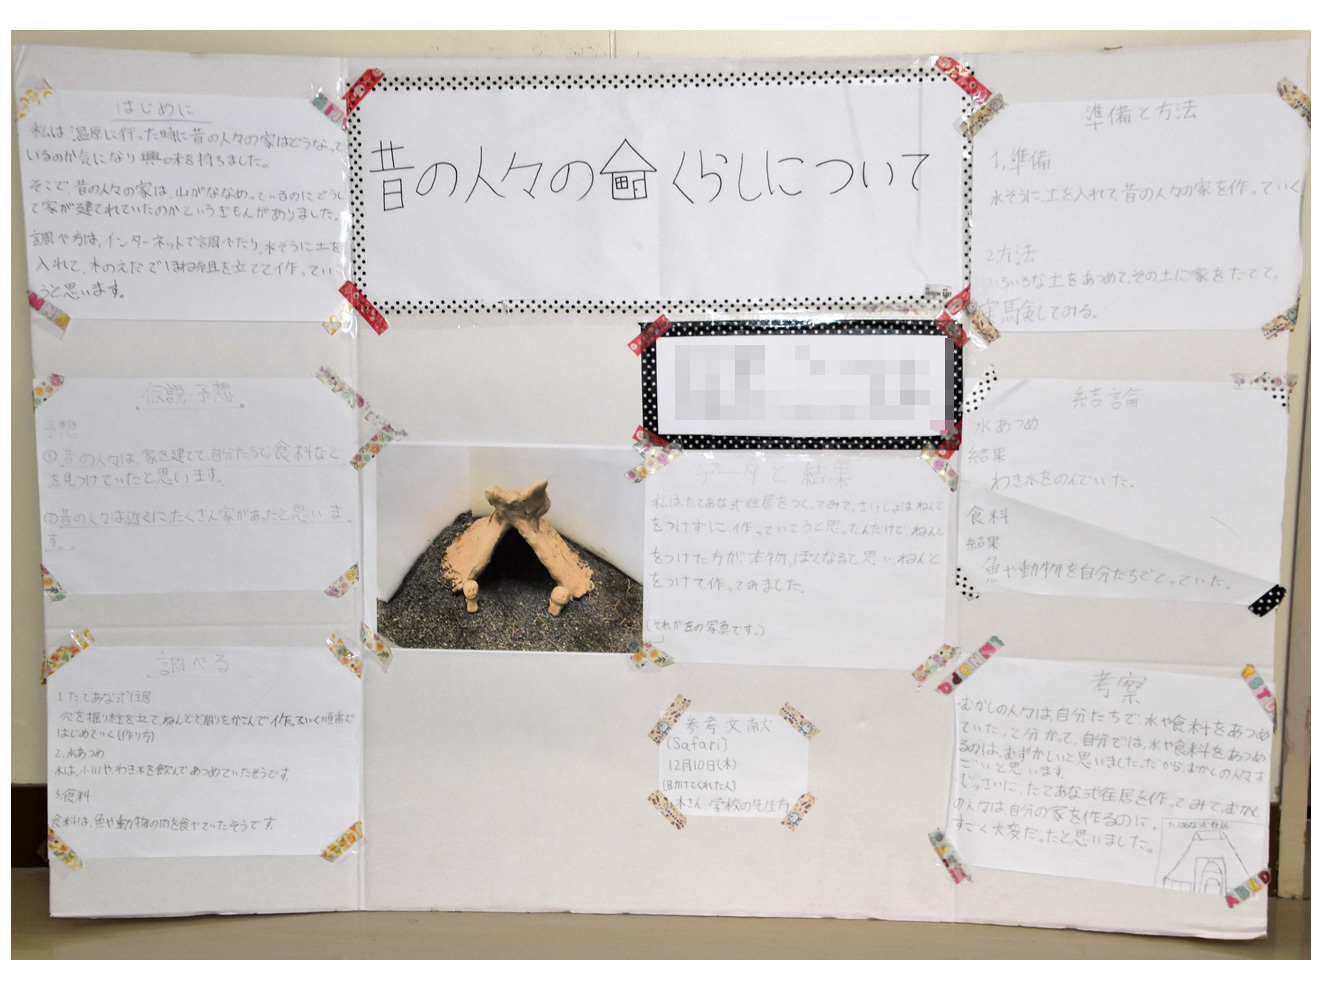 昔の人々のくらしについて
はじめに
私は湿原に行った時に昔の人々の家はどうなって
いるのか気になり興味を持ちました。
そこで昔の人々の家は、山がななめっているのにどうし
て家が建てれていたのかというぎもんがありました。
調べ方は、インターネットで調べたり、水そうに土を
入れて、木のえだでほね組を立てて作っていこ
うと思います。
仮説・予想
予想
①昔の人々は家を建てて、自分たちで食料など
を見つけていたと思います。
②昔の人々は近くにたくさん家があったと思いま
す。
調べる
1.たてあな式住居
穴を掘り柱を立て、ねんどで周りをかこんで作っていく順番で
はじめていく(作り方)
2.水あつめ
水は、小川や、わき水を飲んであつめていたそうです。
3.食料
食料は、魚や動物の肉を食べていたそうです。
データと結果
私はたてあな式住居をつくってみて、さいしょはねんど
をつけずに作っていこうと思ったんだけどねんど
をつけた方が本物っぽくなると思いねんど
をつけて作ってみました。
(それが左の写真です。)
参考文献
[Safari]
12月10日(木)
木さん、学校の先生方
準備と方法
1.準備
水そうに、土を入れて昔の人々の家を作っていく
2.方法
いろいろな土をあつめて、その土に家をたてて、
実験してみる。
結論
水あつめ
結果
わき水をのんでいた。
食料
結果
魚や動物を自分たちでとっていた。
考察
むかしの人々は、自分たちで、水や食料をあつめ
ていたって分かって、自分では、水や食料をあつめ
るのは、むずかしいと思いました。だから、むかしの人々す
ごいと思います。
じっさいに、たてあな式住居を作ってみて、むかし
の人々は、自分の家を作るのに、
すごく大変だったと思いました。
たてあな式住居